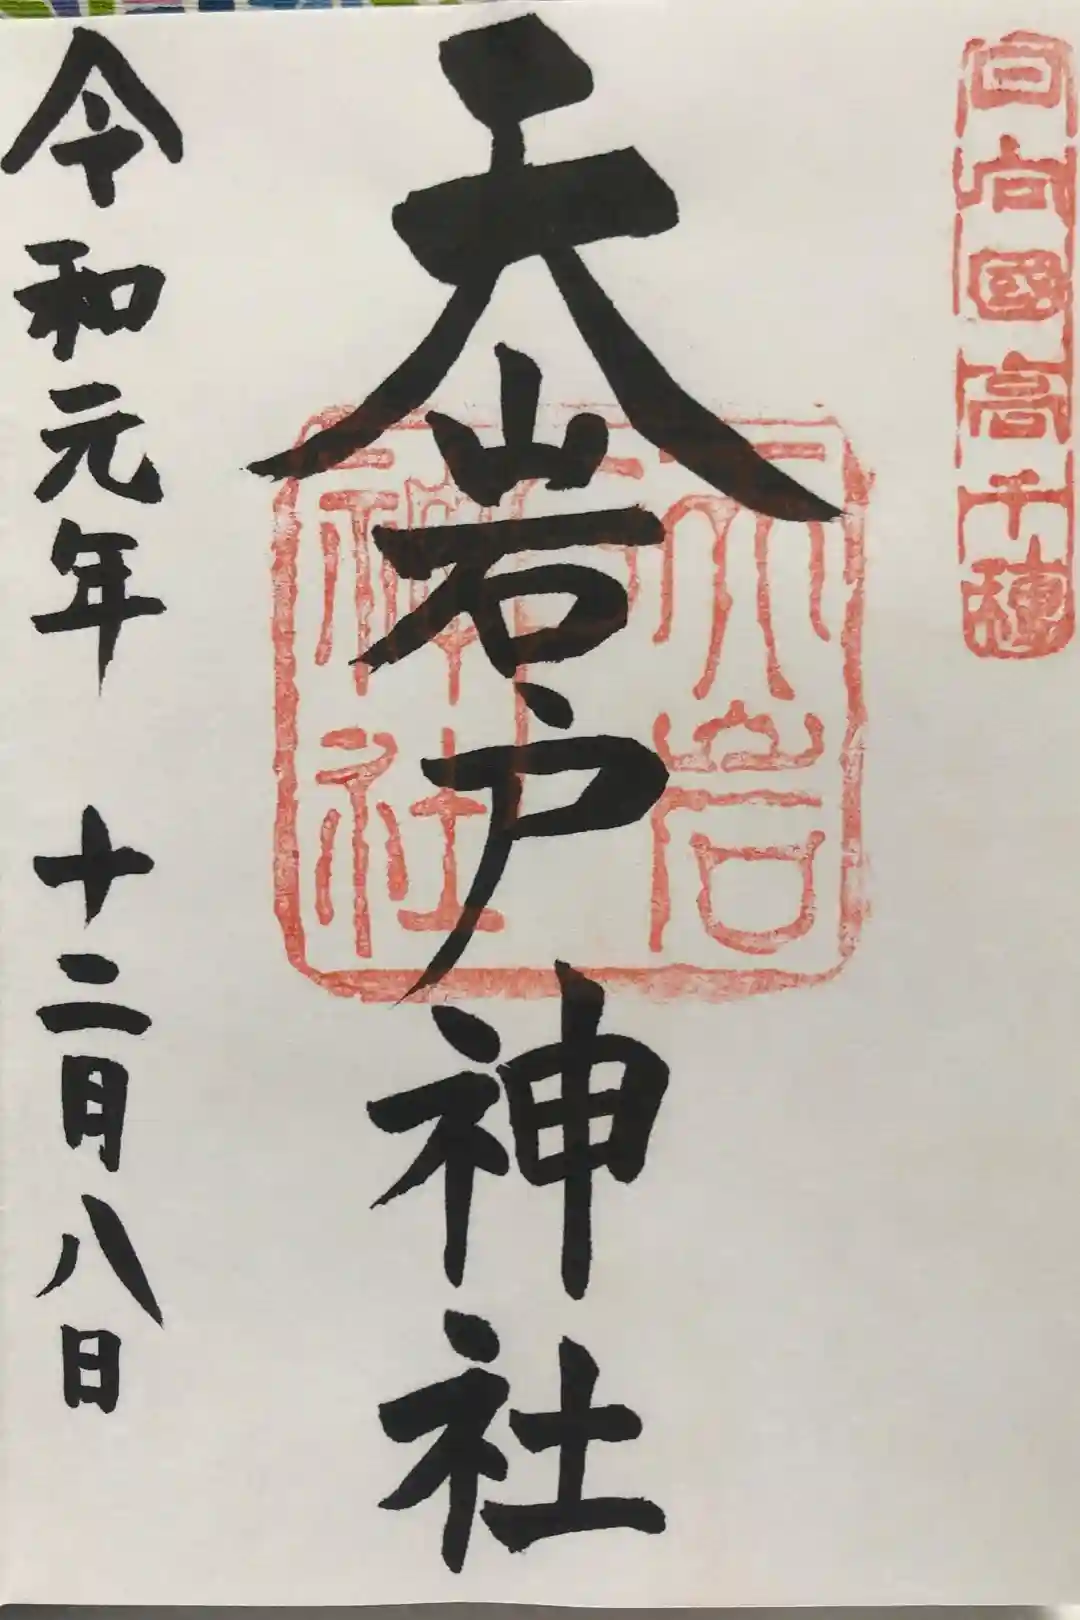 日向國高千穗
天岩戸神社
天岩戸神社
令和元年 十二月八日